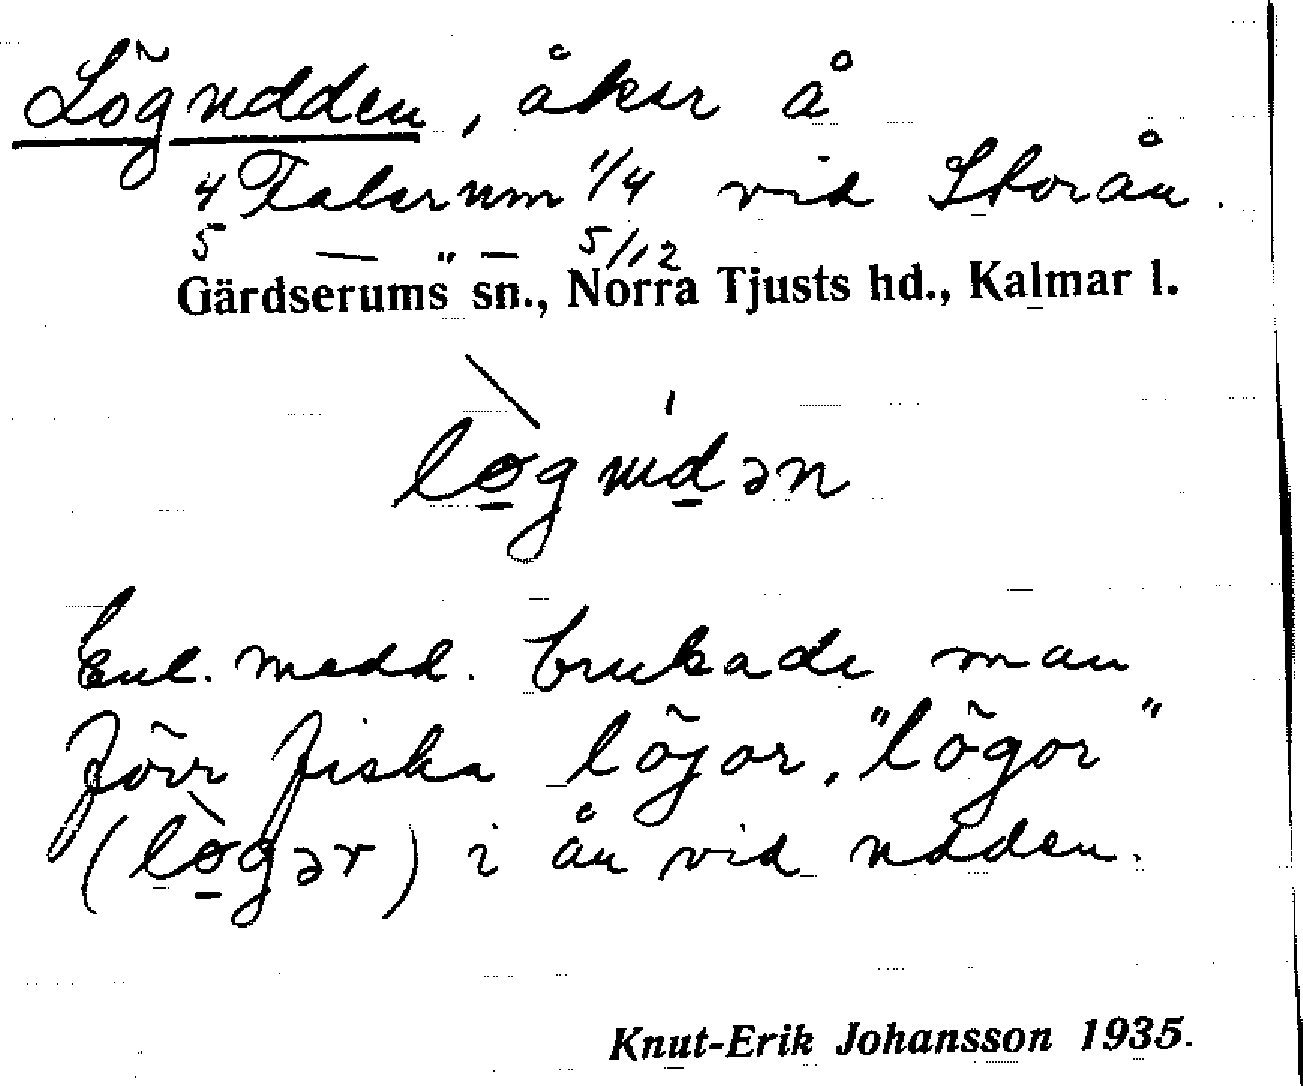 Lögudden, åker å
4 Falerum 1/4 vid Storån.
5 — " — 5/12
Gärdserums sn., Norra Tjusts hd., Kalmar l.
lògudən
Enl. medd. brukade man
förr fiska löjor, "lögor"
(lògər) i ån vid udden.
Knut-Erik Johansson 1935.